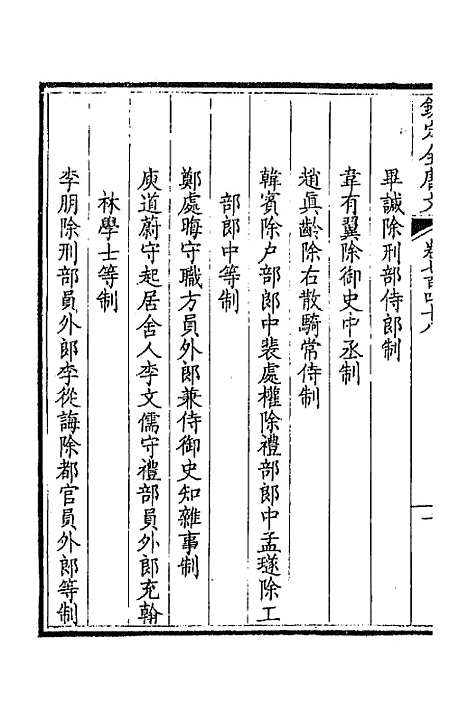 欽定全唐文
卷七百四十八
一
畢諴除刑部侍郎制
韋有翼除御史中丞制
趙真齡除右散騎常侍制
韓賓除户部郎中裴處權除禮部郎中孟璲除工
部郎中等制
鄭處晦守職方員外郎兼侍御史知雜事制
庾道蔚守起居舍人李文儒守禮部員外郎充翰
林學士等制
李朋除刑部員外郎李從誨除都官員外郎等制